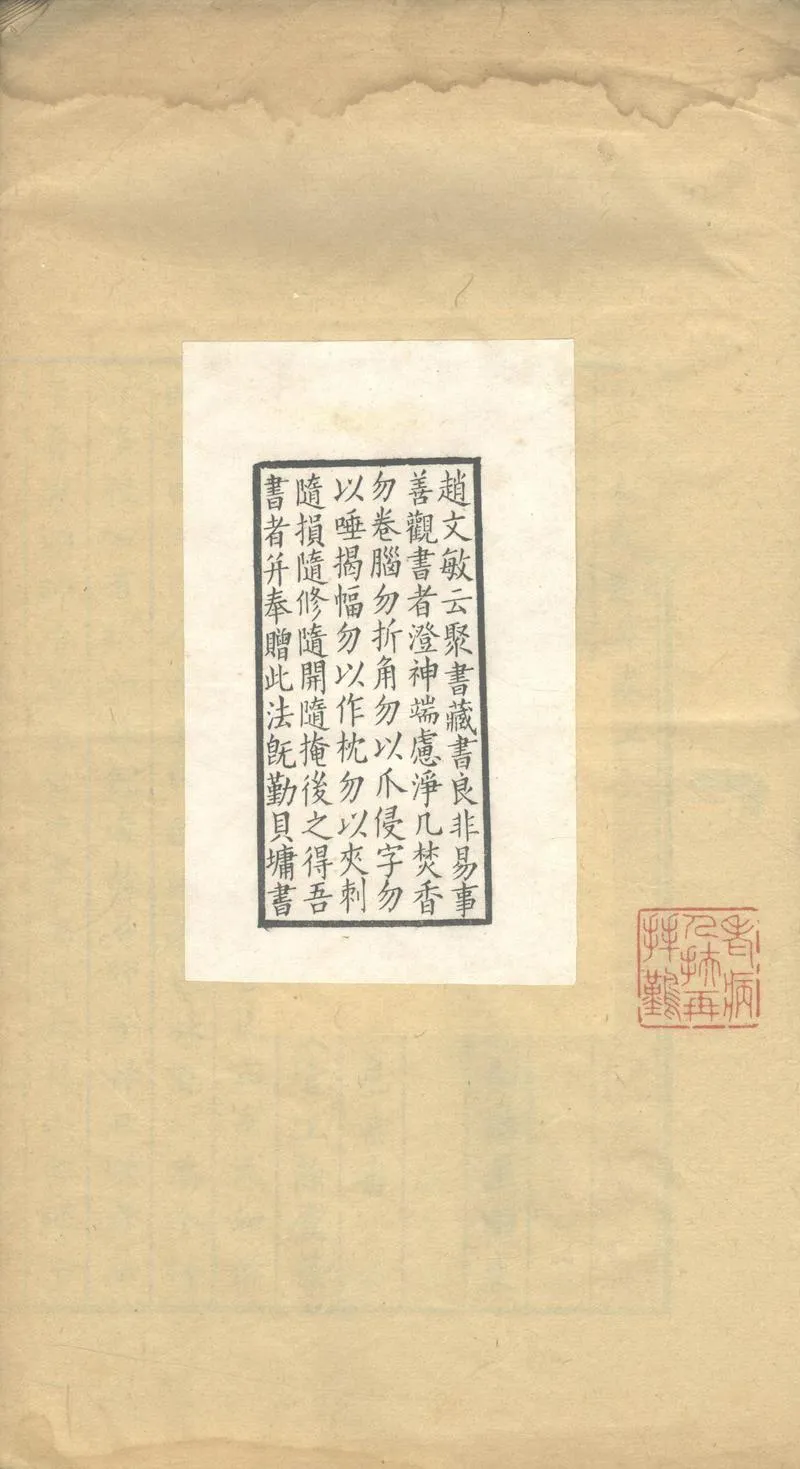 趙文敏云聚書藏書良非易事
善觀書者澄神端慮淨几焚香
勿卷腦勿折角勿以爪侵字勿
以唾揭幅勿以作枕勿以夾刺
隨損隨修隨開隨掩後之得吾
書者并奉贈此法旣勤貝墉書
老病
人扶再
拜難